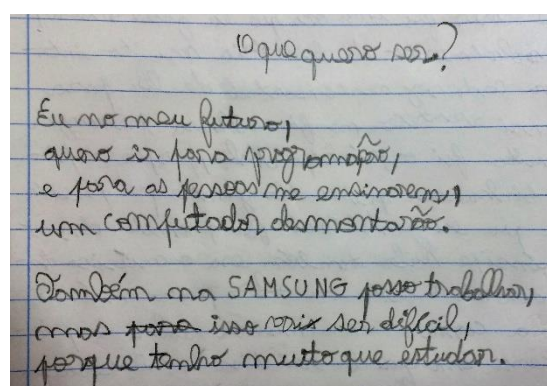 O que quero ser?
Eu no meu futuro,
quero ir para programação,
e para as pessoas me ensinarem,
um computador desmontarão.
Também na SAMSUNG posso trabalhar,
mas para isso vai ser difícil,
porque tenho muito que estudar.